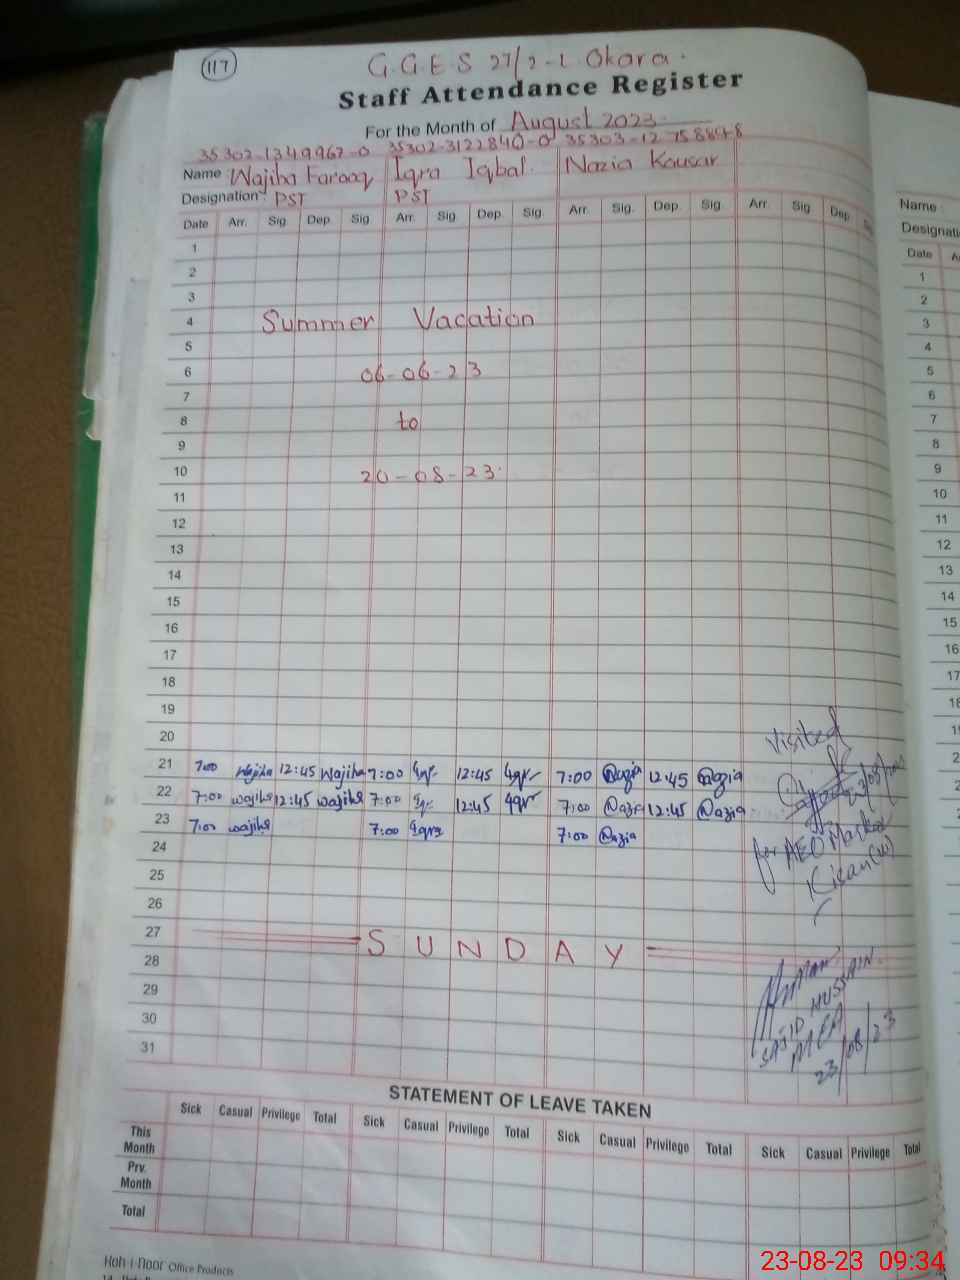 117
G.G.E.S 27/2-L Okara.
Staff Attendance Register
For the Month of August 2023.
35302-1349967-0 35302-3122840-0 35303-1275884-8
Name: Wajiha Farooq Iqra Iqbal. Nazia Kousar
Designation: PST PST
Date Arr. Sig. Dep. Sig Arr. Sig. Dep. Sig. Arr. Sig. Dep. Sig. Arr. Sig Dep
1
2
3
4 Summer Vacation
5
6 06-06-23
7
8 to
9
10 20-08-23.
11
12
13
14
15
16
17
18
19
20
21 7:00 Wajiha 12:45 Wajiha 7:00 Iqr 12:45 Iqr 7:00 Nazia 12:45 Nazia
22 7:00 wajiha 12:45 wajiha 7:00 Iqr 12:45 Iqr 7:00 Nazia 12:45 Nazia
23 7:00 wajiha 7:00 Iqra 7:00 Nazia
24
25
26
27 SUNDAY
28
29
30
31
Visited
for AEO Markaz
Kisan (W)
SAJID HUSSAIN
MEA
23/08/23
STATEMENT OF LEAVE TAKEN
Sick Casual Privilege Total Sick Casual Privilege Total Sick Casual Privilege Total Sick Casual Privilege Total
This Month
Prv. Month
Total
Koh-i-Noor Office Products
Name
Designati
Date A
1
2
3
4
5
6
7
8
9
10
11
12
13
14
15
16
17
23-08-23 09:34